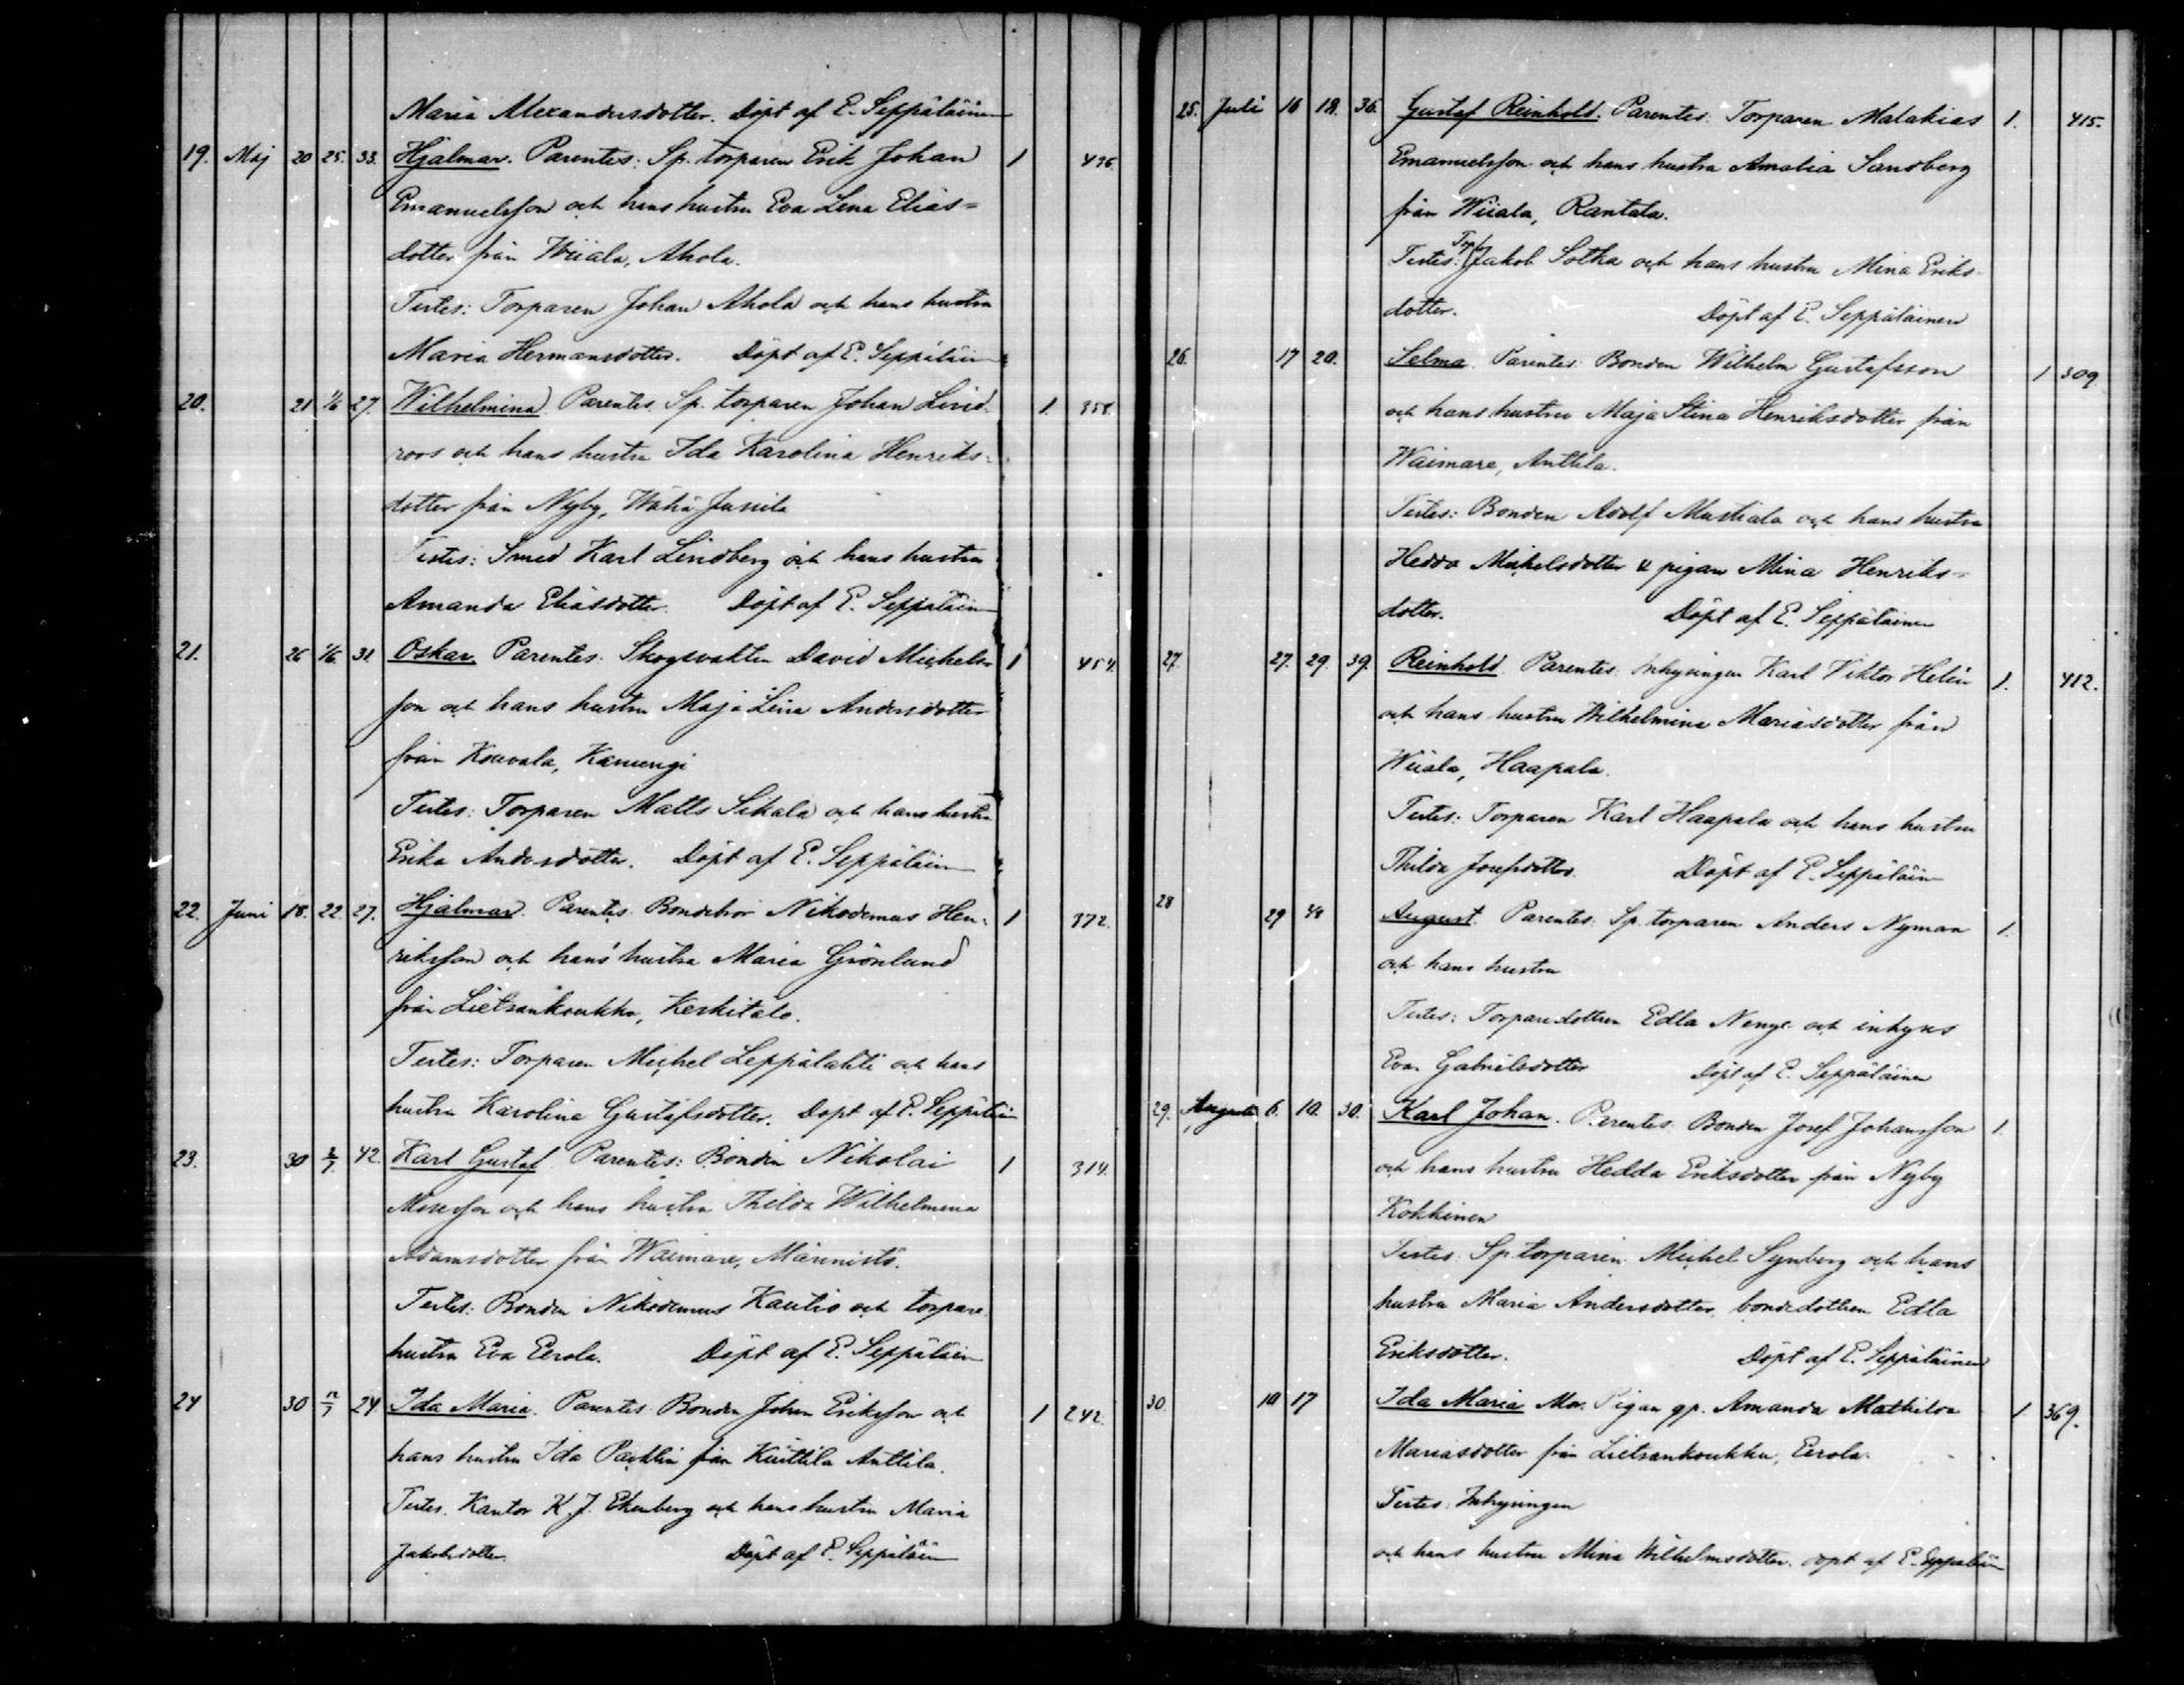 Maria Alexandersdotter. Döpt af E. Seppäläinen
19. Maj 20 25. 33. Hjalmar. Parentes: Sp. torparen Erik Johan 1 426.
Emanuelsson och hans hustru Eva Lena Elias=
dotter från Wiiala, Ahola.
Testes: Torparen Johan Ahola och hans hustru
Maria Hermansdotter. Döpt af E. Seppäläin
20. 21 1/6 27. Wilhelmina. Parentes. Sp. torparen Johan Lind 1. 358.
roos och hans hustru Ida Karolina Henriks=
dotter från Nyby, Wähä Jussila
Testes: Smed Karl Lindberg och hans hustru
Amanda Eliasdotter. Döpt af E. Seppäläin
21. 26 1/6. 31. Oskar. Parentes. Skogvakten David Michels= 1 454.
son och hans hustru Maja Lena Andersdotter
från Kouvala,
Testes: Torparen Matts Sikala och hans hustru
Erika Andersdotter. Döpt af E. Seppäläin
22. Juni 18. 22. 27. Hjalmar. Parentes. Bonden Nikodemus Hen= 1 372.
riksson och hans hustru Maria Grönlund
från Lietsankoukku, Keskitalo.
Testes: Torparen Michel Leppälahti och hans
hustru Karolina Gustafsdotter. Döpt af E. Seppäläin
23. 30 2/7. 42. Karl Gustaf Parentes: Bonden Nikolai 1 314.
Mosesson och hans hustru Thilda Wilhelmina
Adamsdotter från Waimare, Männistö.
Testes: Bonden Nikodemus Kautio och torpare
hustru Eva Eerola. Döpt af E. Seppäläin
24 30 12/7 24 Ida Maria. Parentes. Bonden Johan Eriksson och 1 242.
hans hustru Ida från Kuittila Anttila.
Testes. Kantor K. J. Ekenberg och hans hustru Maria
Jakobsdotter. Döpt af E. Seppäläin
25. Juli 16 18. 36. Gustaf Reinhold. Parentes. Torparen Malakias 1. 415.
Emanuelsson och hans hustru Amalia Sandberg
från Wiiala, Rantala.
Testes: Torp. Jakob Sotka och hans hustru Mina Eriks-
dotter. Döpt af E. Seppäläinen
26. 17 20. Selma. Parentes. Bonden Wilhelm Gustafsson 1 309
och hans hustru Maja Stina Henriksdotter från
Waimare, Anttila.
Testes: Bonden Adolf Mustiala och hans hustru
Hedda Michelsdotter & pigan Mina Henriks=
dotter. Döpt af E. Seppäläinen
27. 27. 29. 39. Reinhold Parentes. Inhysingen Karl Viktor Helin 1. 412.
och hans hustru Wilhelmina Mariasdotter från
Wiiala, Haapala.
Testes: Torparen Karl Haapala och hans hustru
Thilda Josefsdotter. Döpt af E. Seppäläin
28 29 4/8 August. Parentes. Sp. torparen Anders Nyman 1.
och hans hustru
Testes: Torparedottren Edla och inhyses
Eva Gabrielsdotter Döpt af E. Seppäläinen
29. Augusti 6. 10. 30. Karl Johan. Parentes. Bonden Josef Johansson 1.
och hans hustru Hedda Eriksdotter från Nyby
Kokkinen
Testes: Sp torparen Michel Synberg och hans
hustru Maria Andersdotter, bondedottren Edla
Eriksdotter. Döpt af E. Seppäläinen
30. 10 17 Ida Maria Mor. Pigan gp. Amanda Mathilda 1 369.
Mariasdotter från Lietsankoukku, Eerola.
Testes: Inhysingen
och hans hustru Mina Wilhelmsdotter. döpt af E. Seppäläin